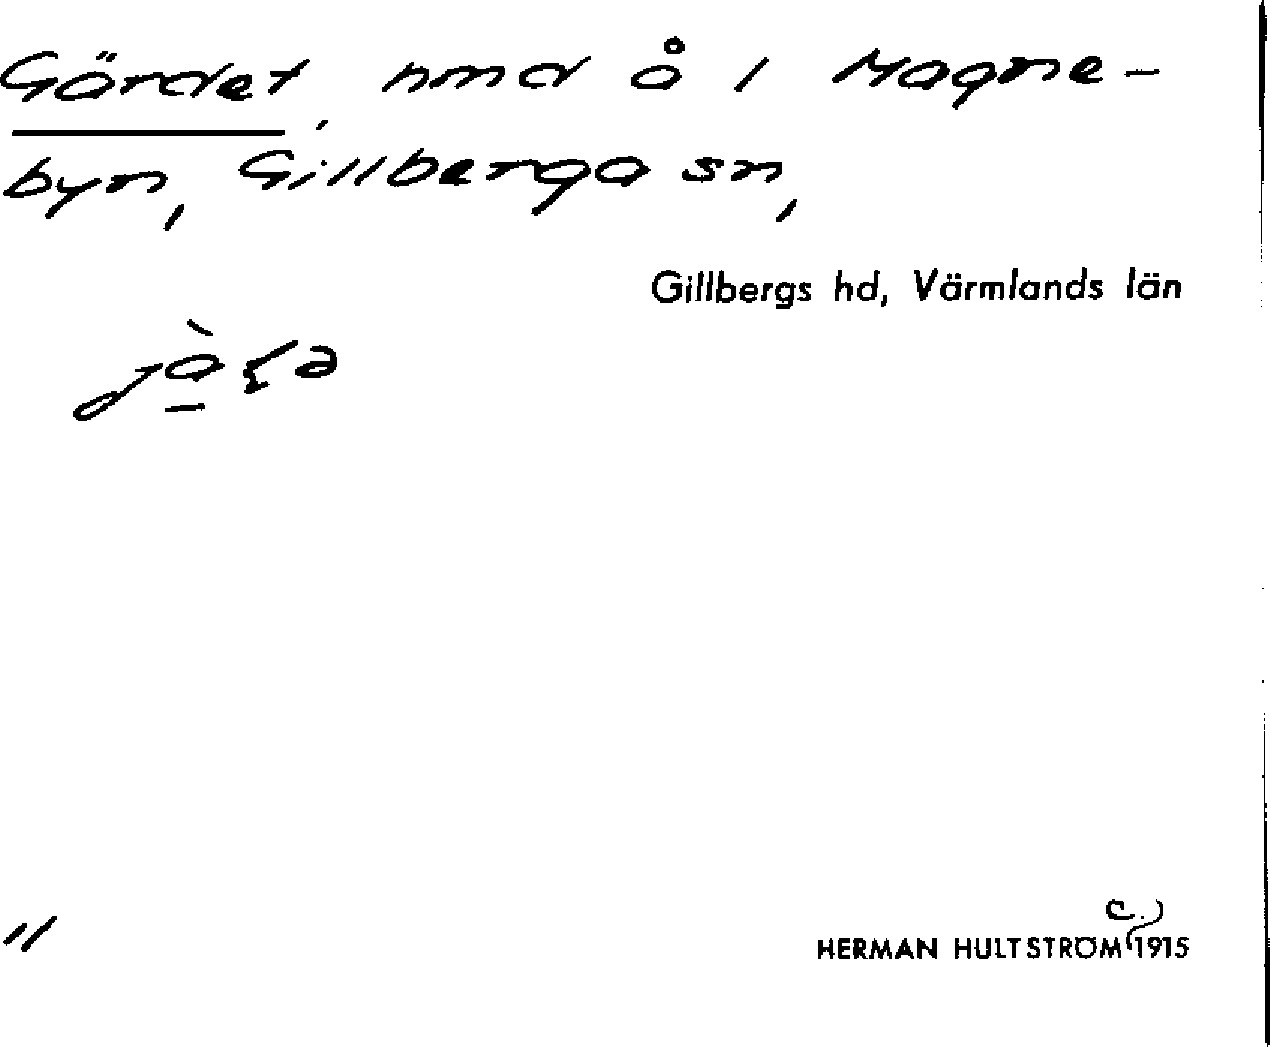 Gärdet, hmd å 1 Magne-
byn, Gillberga sn,
Gillbergs hd, Värmlands län
11
c.)
HERMAN HULTSTRÖM 1915